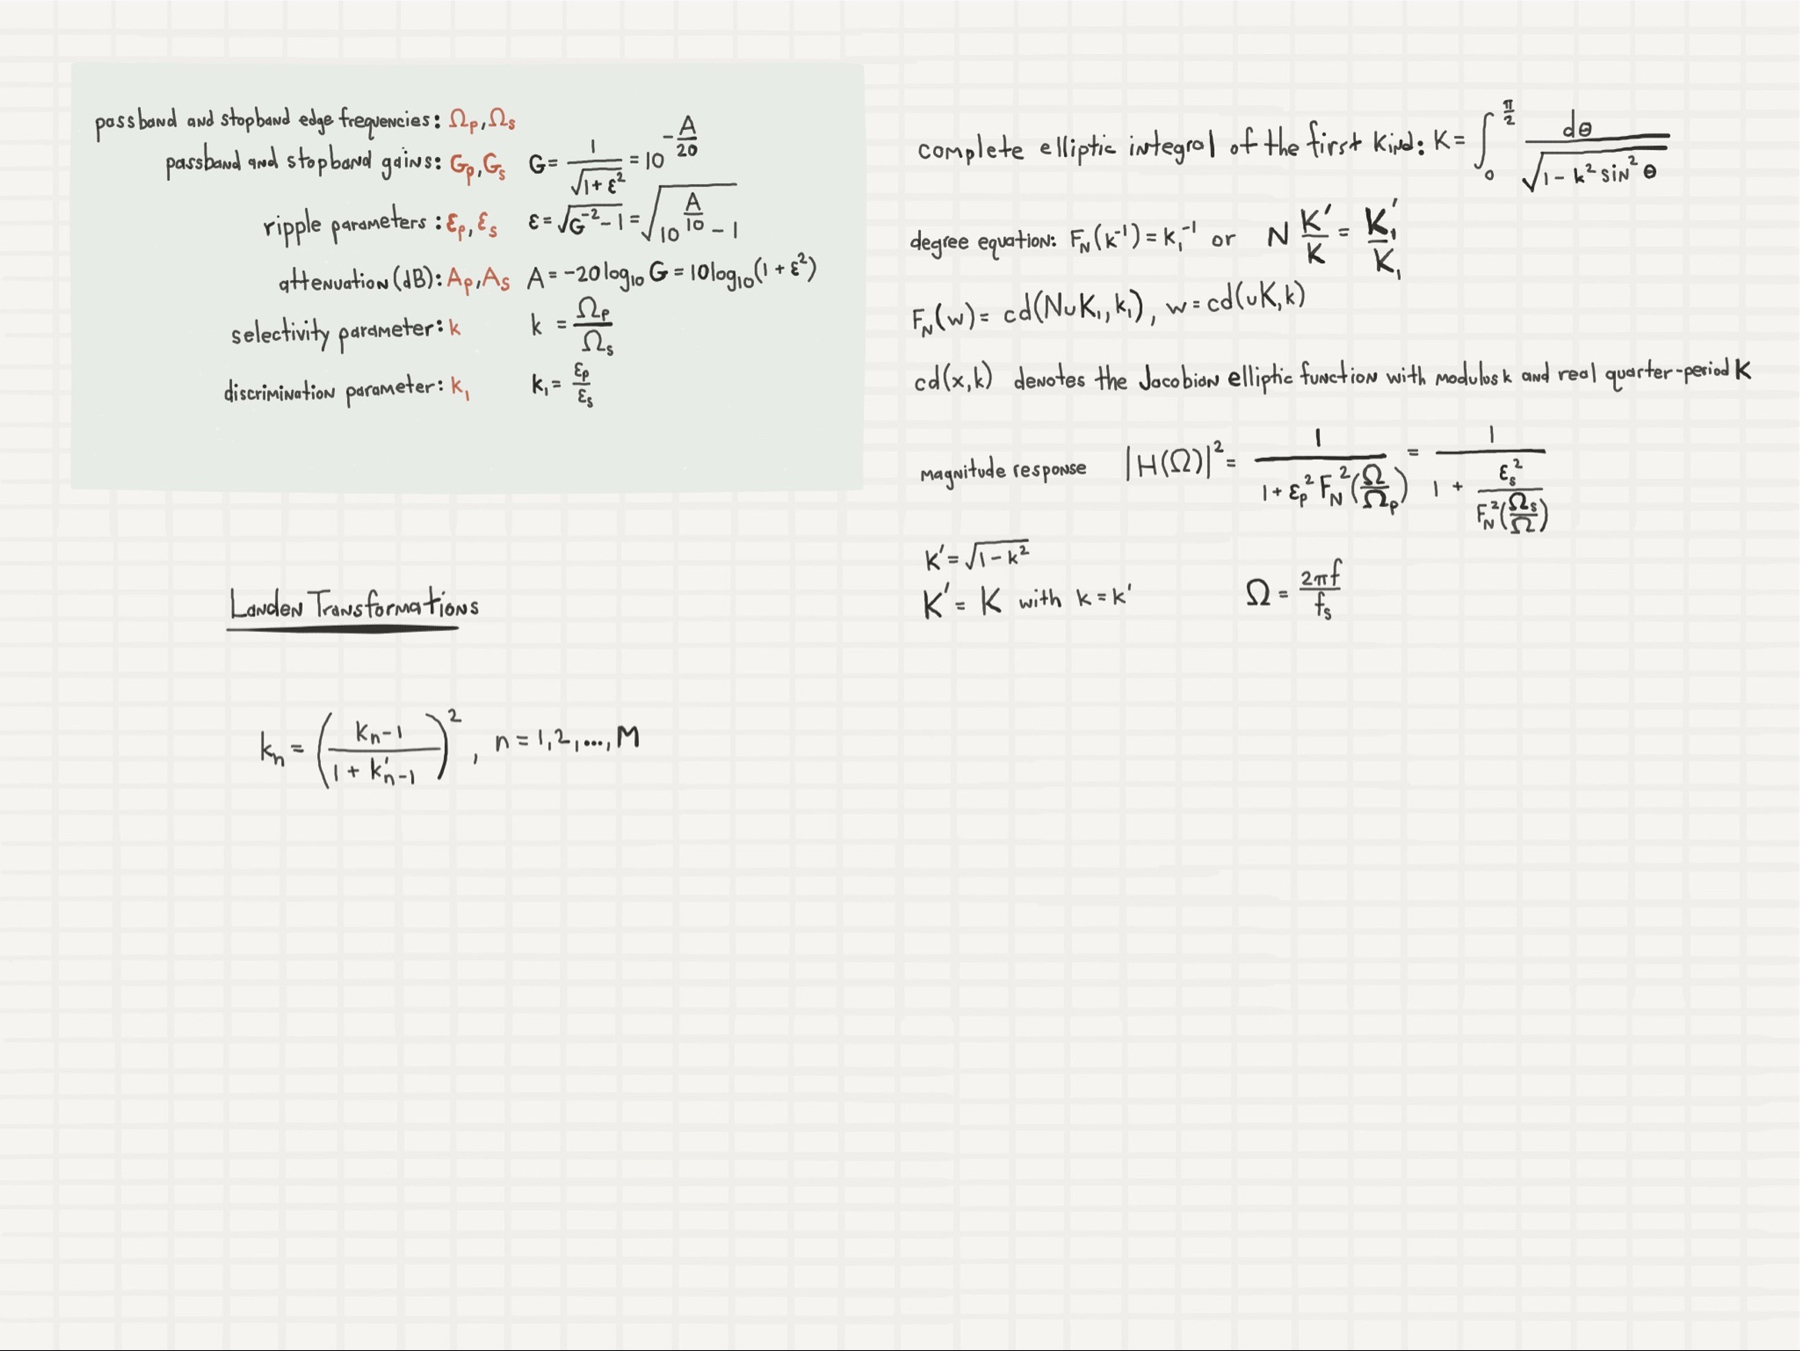 passband and stopband edge frequencies: Ωp, Ωs
passband and stopband gains: Gp, Gs G = 1/√(1 + ε²) = 10^(-A/20)
ripple parameters: εp, εs ε = √(G⁻² - 1) = √(10^(A/10) - 1)
attenuation (dB): Ap, As A = -20 log₁₀ G = 10 log₁₀(1 + ε²)
selectivity parameter: k k = Ωp/Ωs
discrimination parameter: k₁ k₁ = εp/εs
Landen Transformations
kₙ = (kₙ₋₁/(1 + k'ₙ₋₁))², n = 1, 2, ..., M
complete elliptic integral of the first kind: K = ∫₀^(π/2) dθ/√(1 - k² sin² θ)
degree equation: F_N(k⁻¹) = k₁⁻¹ or N K'/K = K₁'/K₁
F_N(w) = cd(NuK₁, k₁), w = cd(uK, k)
cd(x, k) denotes the Jacobian elliptic function with modulus k and real quarter-period K
magnitude response |H(Ω)|² = 1/(1 + εp² F_N²(Ω/Ωp)) = 1/(1 + εs²/F_N²(Ωs/Ω))
k' = √(1 - k²)
K' = K with k = k' Ω = 2πf/fs